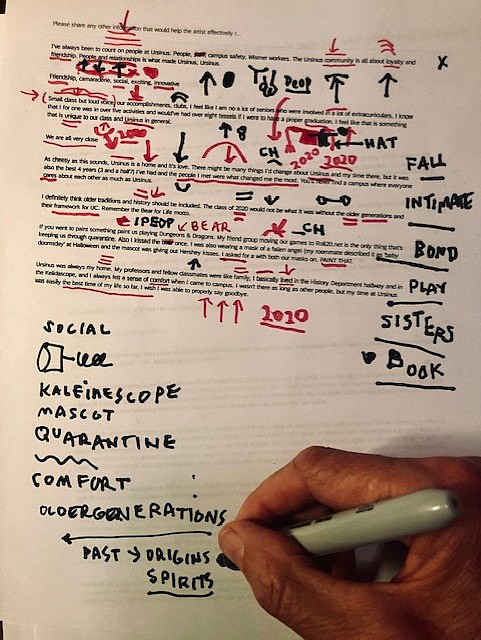 Please share any other information that would help the artist effectively r...
I've always been to count on people at Ursinus. People, campus safety, Wismer workers. The Ursinus community is all about loyalty and
friendship. People and relationships is what made Ursinus, Ursinus.
X
Friendship, camaraderie, social, exciting, innovative
PEOP
Small class but loud voice, our accomplishments, clubs, I feel like I am no a lot of seniors who were involved in a lot of extracurriculars. I know
that I for one was in over five activities and would've had over eight tassels if I went to have a proper graduation. I feel like that is something
that is unique to our class and Ursinus in general.
2020
8
We are all very close
CH
2020
2020
HAT
FALL
As cheesy as this sounds, Ursinus is a home and it's love. There might be many things I'd change about Ursinus and my time there, but it was
also the best 4 years (3 and a half?) I've had and the people I met were what changed me the most. You'll never find a campus where everyone
cares about each other as much as Ursinus.
INTIMATE
I definitely think older traditions and history should be included. The class of 2020 would not be what it was without the older generations and
their framework for UC. Remember the Bear for Life motto.
1 PEOP
BEAR
CH
If you want to paint something paint us playing Dungeons & Dragons. My friend group moving our games to Roll20.net is the only thing that's
keeping us through quarantine. Also I kissed the bear once. I was also wearing a mask of a fallen angel (my roommate described it as 'baby
doomsday' at Halloween and the mascot was giving out Hershey kisses. I asked for a kiss with both our masks on. PAINT THAT.
BOND
Ursinus was always my home. My professors and fellow classmates were like family, I basically lived in the History Department hallway and in
the Kelidoscope, and I always felt a sense of comfort when I came to campus. I wasn't there as long as other people, but my time at Ursinus
was easily the best time of my life so far. I wish I was able to properly say goodbye.
PLAY
2020
SISTERS
BOOK
SOCIAL
KALEINESCOPE
MASCOT
QUARANTINE
COMFORT
OLDERGENERATIONS
PAST → ORIGINS
SPIRITS